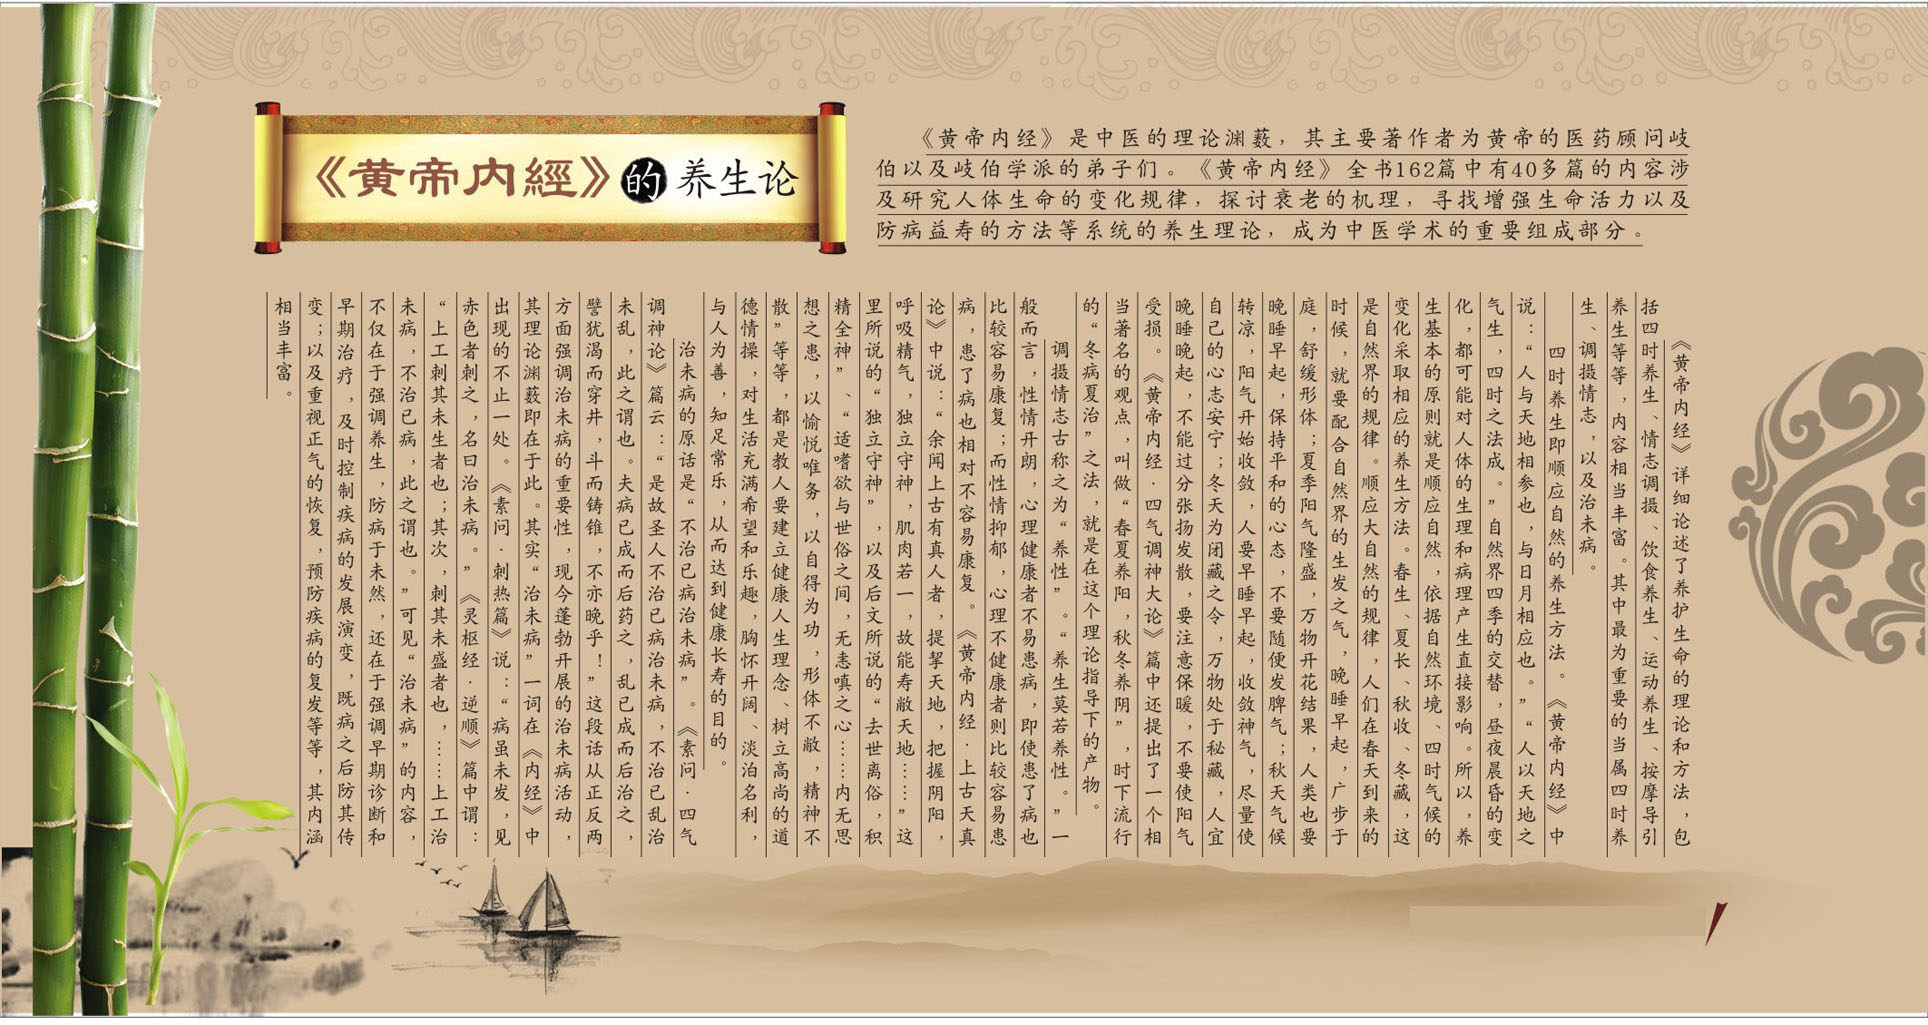 《黄帝内經》的养生论
《黄帝内经》是中医的理论渊薮，其主要著作者为黄帝的医药顾问岐
伯以及岐伯学派的弟子们。《黄帝内经》全书162篇中有40多篇的内容涉
及研究人体生命的变化规律，探讨衰老的机理，寻找增强生命活力以及
防病益寿的方法等系统的养生理论，成为中医学术的重要组成部分。
《黄帝内经》详细论述了养护生命的理论和方法，包
括四时养生、情志调摄、饮食养生、运动养生、按摩导引
养生等等，内容相当丰富。其中最为重要的当属四时养
生、调摄情志，以及治未病。
四时养生即顺应自然的养生方法。《黄帝内经》中
说：“人与天地相参也，与日月相应也。”“人以天地之
气生，四时之法成。”自然界四季的交替，昼夜晨昏的变
化，都可能对人体的生理和病理产生直接影响。所以，养
生基本的原则就是顺应自然，依据自然环境、四时气候的
变化采取相应的养生方法。春生、夏长、秋收、冬藏，这
是自然界的规律。顺应大自然的规律，人们在春天到来的
时候，就要配合自然界的生发之气，晚睡早起，广步于
庭，舒缓形体；夏季阳气隆盛，万物开花结果，人类也要
晚睡早起，保持平和的心态，不要随便发脾气；秋天气候
转凉，阳气开始收敛，人要早睡早起，收敛神气，尽量使
自己的心志安宁；冬天为闭藏之令，万物处于秘藏，人宜
晚睡晚起，不能过分张扬发散，要注意保暖，不要使阳气
受损。《黄帝内经·四气调神大论》篇中还提出了一个相
当著名的观点，叫做“春夏养阳，秋冬养阴”，时下流行
的“冬病夏治”之法，就是在这个理论指导下的产物。
调摄情志古称之为“养性”。“养生莫若养性。”一
般而言，性情开朗，心理健康者不易患病，即使患了病也
比较容易康复；而性情抑郁，心理不健康者则比较容易患
病，患了病也相对不容易康复。《黄帝内经·上古天真
论》中说：“余闻上古有真人者，提挈天地，把握阴阳，
呼吸精气，独立守神，肌肉若一，故能寿敝天地……”这
里所说的“独立守神”，以及后文所说的“去世离俗，积
精全神”、“适嗜欲与世俗之间，无恚嗔之心……内无思
想之患，以愉悦唯务，以自得为功，形体不敝，精神不
散”等等，都是教人要建立健康人生理念、树立高尚的道
德情操，对生活充满希望和乐趣，胸怀开阔、淡泊名利，
与人为善，知足常乐，从而达到健康长寿的目的。
治未病的原话是“不治已病治未病”。《素问·四气
调神论》篇云：“是故圣人不治已病治未病，不治已乱治
未乱，此之谓也。夫病已成而后药之，乱已成而后治之，
譬犹渴而穿井，斗而铸锥，不亦晚乎！”这段话从正反两
方面强调治未病的重要性，现今蓬勃开展的治未病活动，
其理论渊薮即在于此。其实“治未病”一词在《内经》中
出现的不止一处。《素问·刺热篇》说：“病虽未发，见
赤色者刺之，名曰治未病。”《灵枢经·逆顺》篇中谓：
“上工刺其未生者也；其次，刺其未盛者也，……上工治
未病，不治已病，此之谓也。”可见“治未病”的内容，
不仅在于强调养生，防病于未然，还在于强调早期诊断和
早期治疗，及时控制疾病的发展演变，既病之后防其传
变；以及重视正气的恢复，预防疾病的复发等等，其内涵
相当丰富。